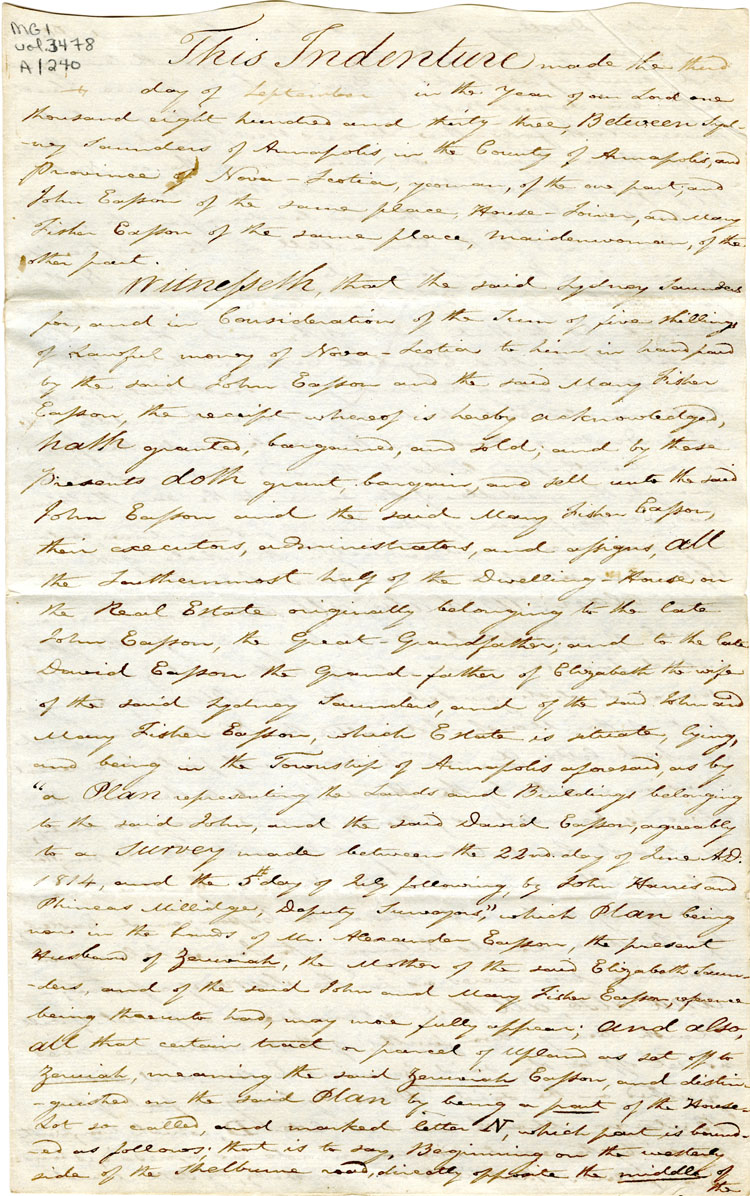 MG1
vol.3478
A1240
This Indenture made the third
day of September in the Year of our Lord one
thousand eight hundred and thirty three, Between Syd-
-ney Saunders of Annapolis, in the County of Annapolis, and
Province of Nova-Scotia, yeoman, of the one part; and
John Easson of the same place, House-Joiner, and Mary
Fisher Easson of the same place, maidenwoman, of the
other part.
Witnesseth, that the said Sydney Saunders
for, and in Consideration of the Sum of five shillings
of Lawful money of Nova-Scotia to him in hand paid
by the said John Easson and the said Mary Fisher
Easson, the receipt whereof is hereby acknowledged,
hath granted, bargained, and sold; and by these
Presents doth grant, bargain, and sell unto the said
John Easson and the said Mary Fisher Easson,
their executors, administrators, and assigns, all
the Southernmost half of the Dwelling-House on
the Real Estate originally belonging to the late
John Easson, the Great-Grandfather; and to the late
David Easson the Grand-father of Elizabeth the wife
of the said Sydney Saunders, and of the said John and
Mary Fisher Easson, which Estate is situate, lying,
and being in the Township of Annapolis aforesaid, as by
"a Plan representing the Lands and Buildings belonging
to the said John, and the said David Easson, agreeably
to a Survey made between the 22nd. day of June A.D.
1814, and the 5th day of July following, by John Harris and
Phineas Millidge, Deputy Surveyors," which Plan being
now in the hands of Mr. Alexander Easson, the present
Husband of Zeruiah, the Mother of the said Elizabeth Saun-
-ders, and of the said John and Mary Fisher Easson, reference
being thereunto had, may more fully appear; and also,
all that certain tract or parcel of Upland as set off to
Zeruiah, meaning the said Zeruiah Easson, and distin-
-guished on the said Plan by being a part of the House-
Lot so called, and marked letter N, which part is bound-
-ed as follows; that is to say, Beginning on the westerly
side of the Shelburne road, directly opposite the middle of
the